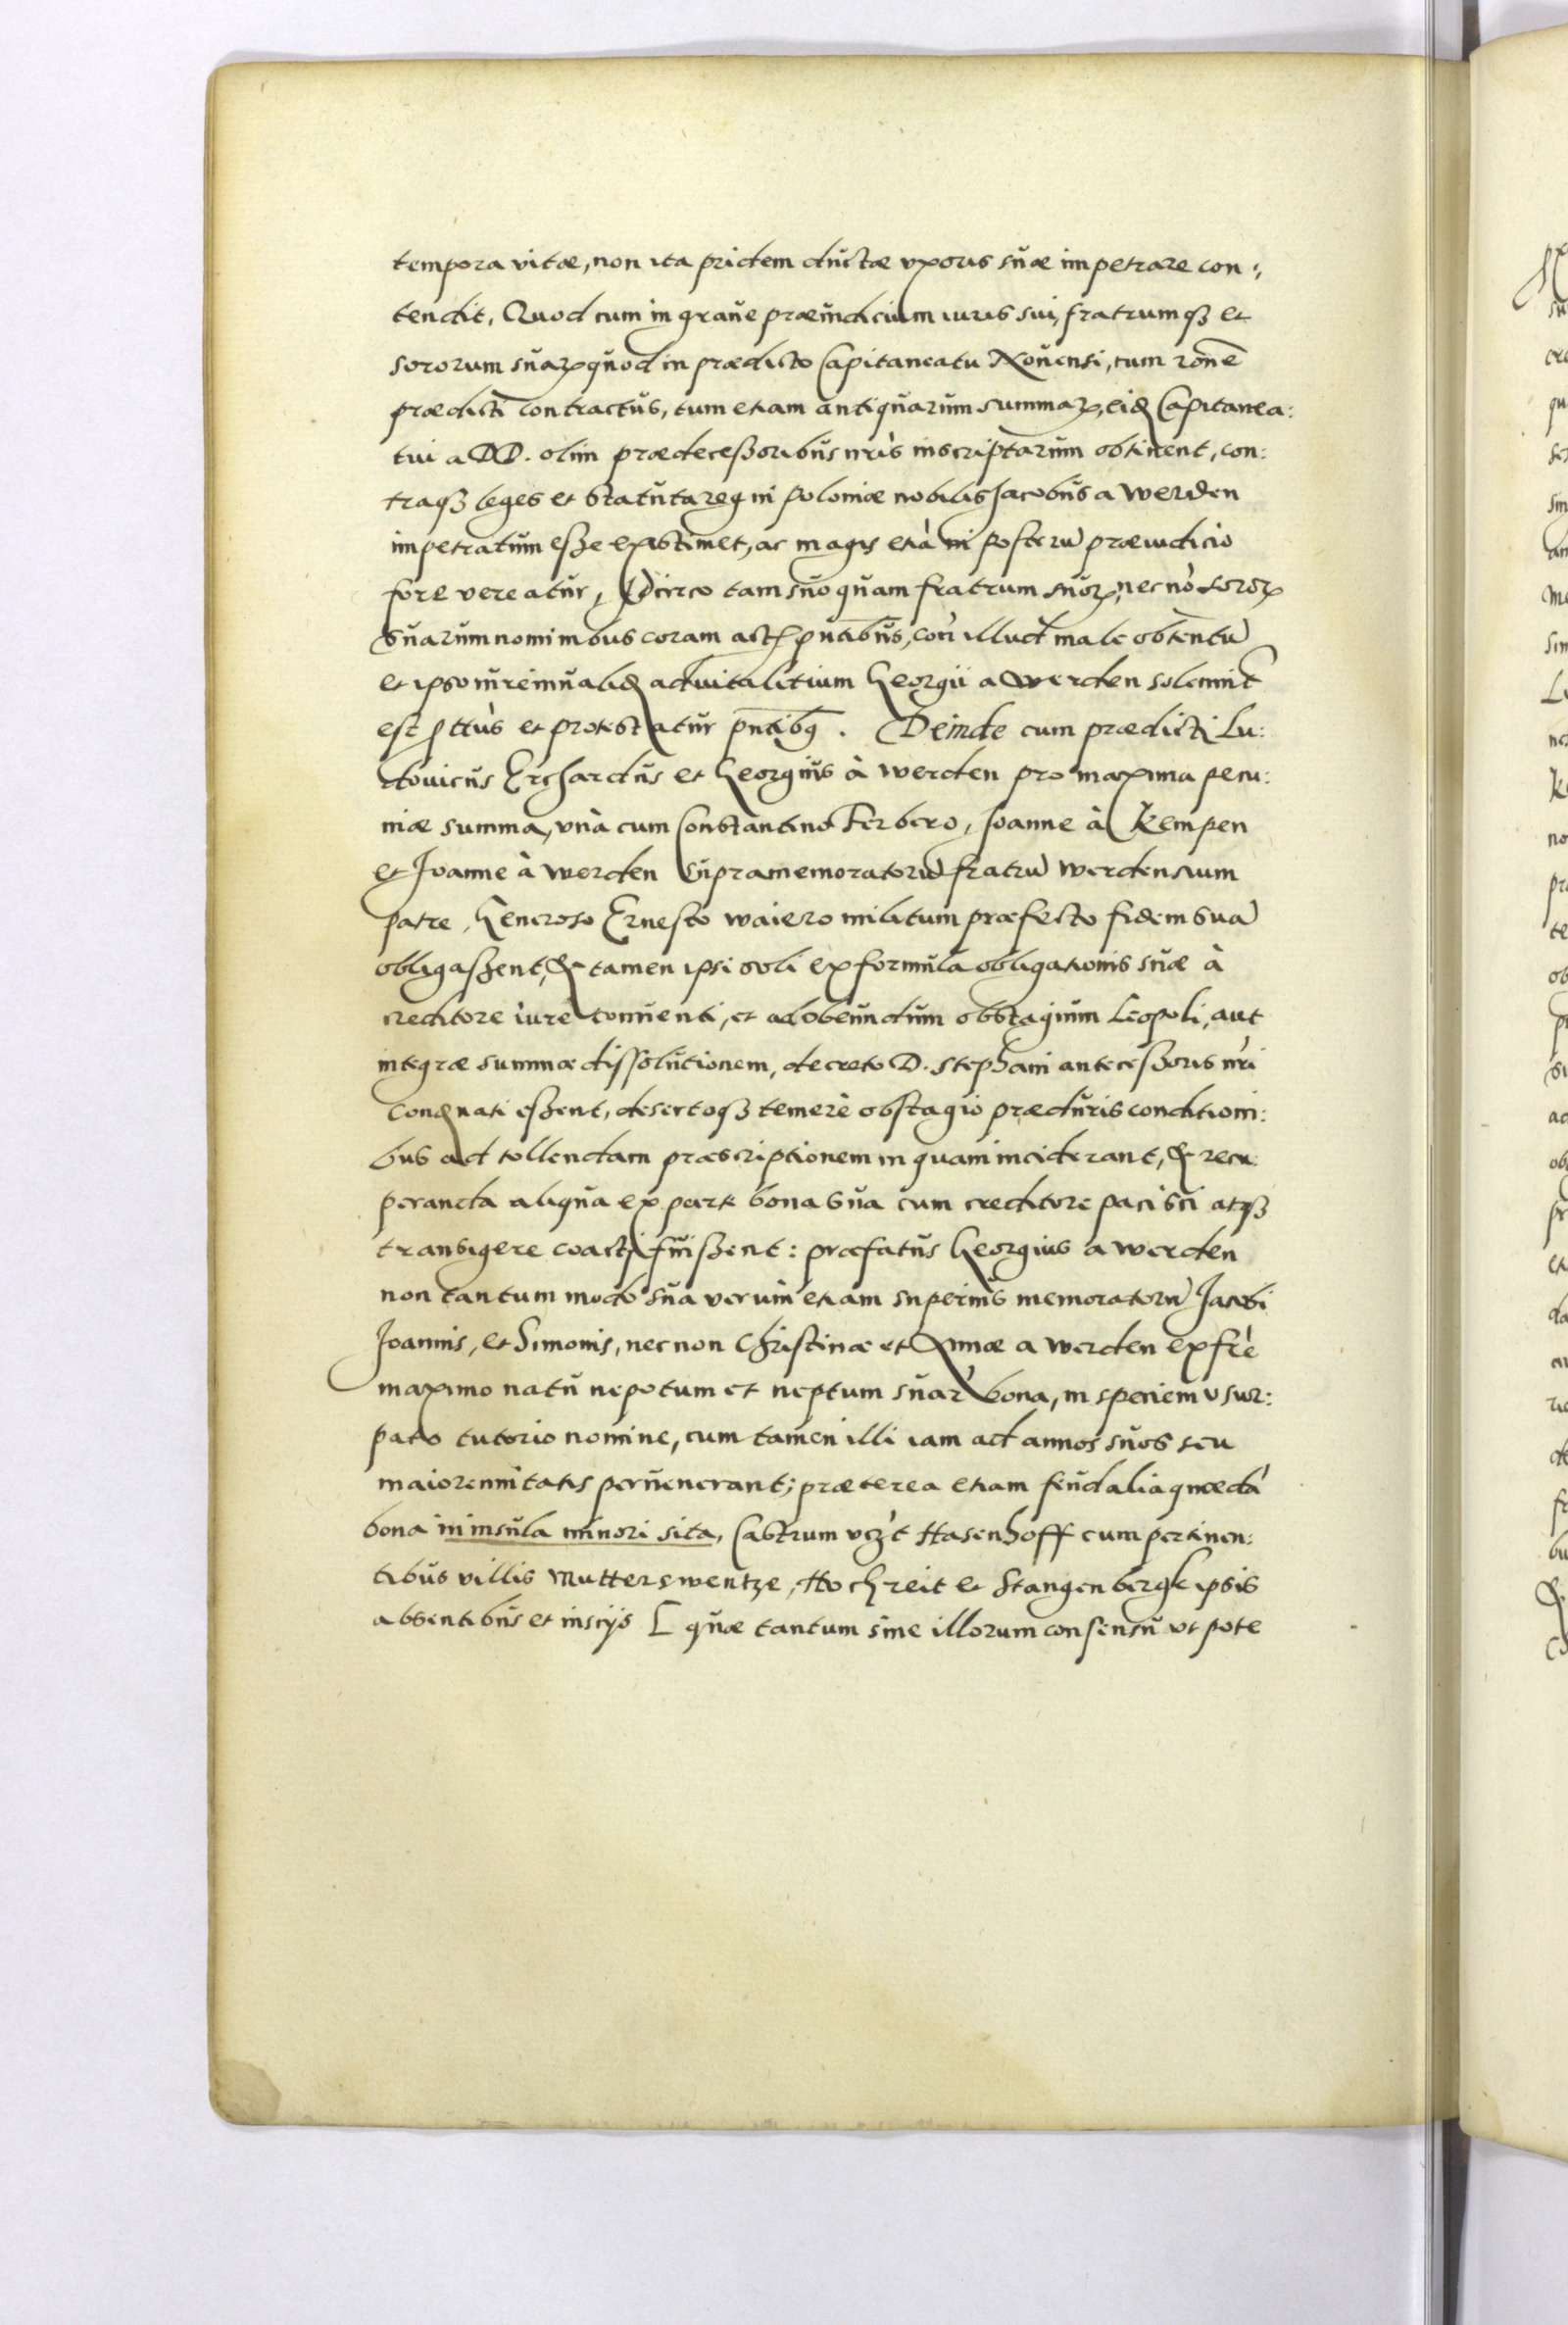 tempora vitæ, non ita pridem ductæ vxoris suæ impetrare con:
tendit, Quod cum in graue præiudicium iuris sui, fratrumqȝ et
sororum suaꝝ quod in prædicto Capitaneatu Nouensi, tum rõne
prædicti contractus, tum etiam antiquarum summaꝝ, eidꝫ Capitanea:
tui a DD. olim prædecessoribus nr̃is inscriptarum obtinent, con:
traqȝ leges et statuta regni Poloniæ nobilis Jacobus a Werden
impetratum esse existimet, ac magis etiã in posterũ præiudicio
fore vereatur, Idcirco tam suo quam fratrum suoꝝ, nec nõ soroꝝ
suarum nominibus coram actis pñtibus, cõtra illud male obtentũ
et ipso iure inualidꝫ aduitalitium Georgii a Werden solennit̃
est ꝓttũs et protestatur pñtibꝰ. Deinde cum prædicti Lu:
douicus Erchardus et Georgius à Werden pro maxima pecu:
niæ summa, vnà cum Constantino Ferbero, Joanne à Kempen
et Joanne à Werden supramemoratorũ fratrũ Werdensium
patre, Generoso Ernesto Waiero militum præfecto fidem suã
obligassent, & tamen ipsi soli ex formula obligationis suæ à
creditore iure conuenti, et ad obeundum obstagium Leopoli, aut
integræ summæ dissolutionem, decreto D. Stephani antecessoris nr̃i
condẽnati essent, desertoqȝ temerè obstagio præduris conditioni:
bus ad tollendam præscriptionem in quam inciderant, & recu:
peranda aliqua ex parte bona sua cum creditore pacisci atqȝ
transigere coacti fuissent: præfatus Georgius a Werden
non tantum modo sua verum etiam superius memoratorũ Jacobi
Joannis, et Simonis, nec non Christinæ et Annæ a Werden ex fr̃e
maximo natu nepotum et neptum suar̃ bona, in speciem vsur:
pato tutorio nomine, cum tamen illi iam ad annos suos seu
maiorennitatis peruenerant; præterea etiam feudalia quædã
bona in insula minori sita, Castrum vcȝt Hasenhoff cum pertinen:
tibus villis Mutterswentze, Hochzeit et Stangenbergk ipsis
absentibus et inscijs [ quæ tantum sine illorum consensu vt pote